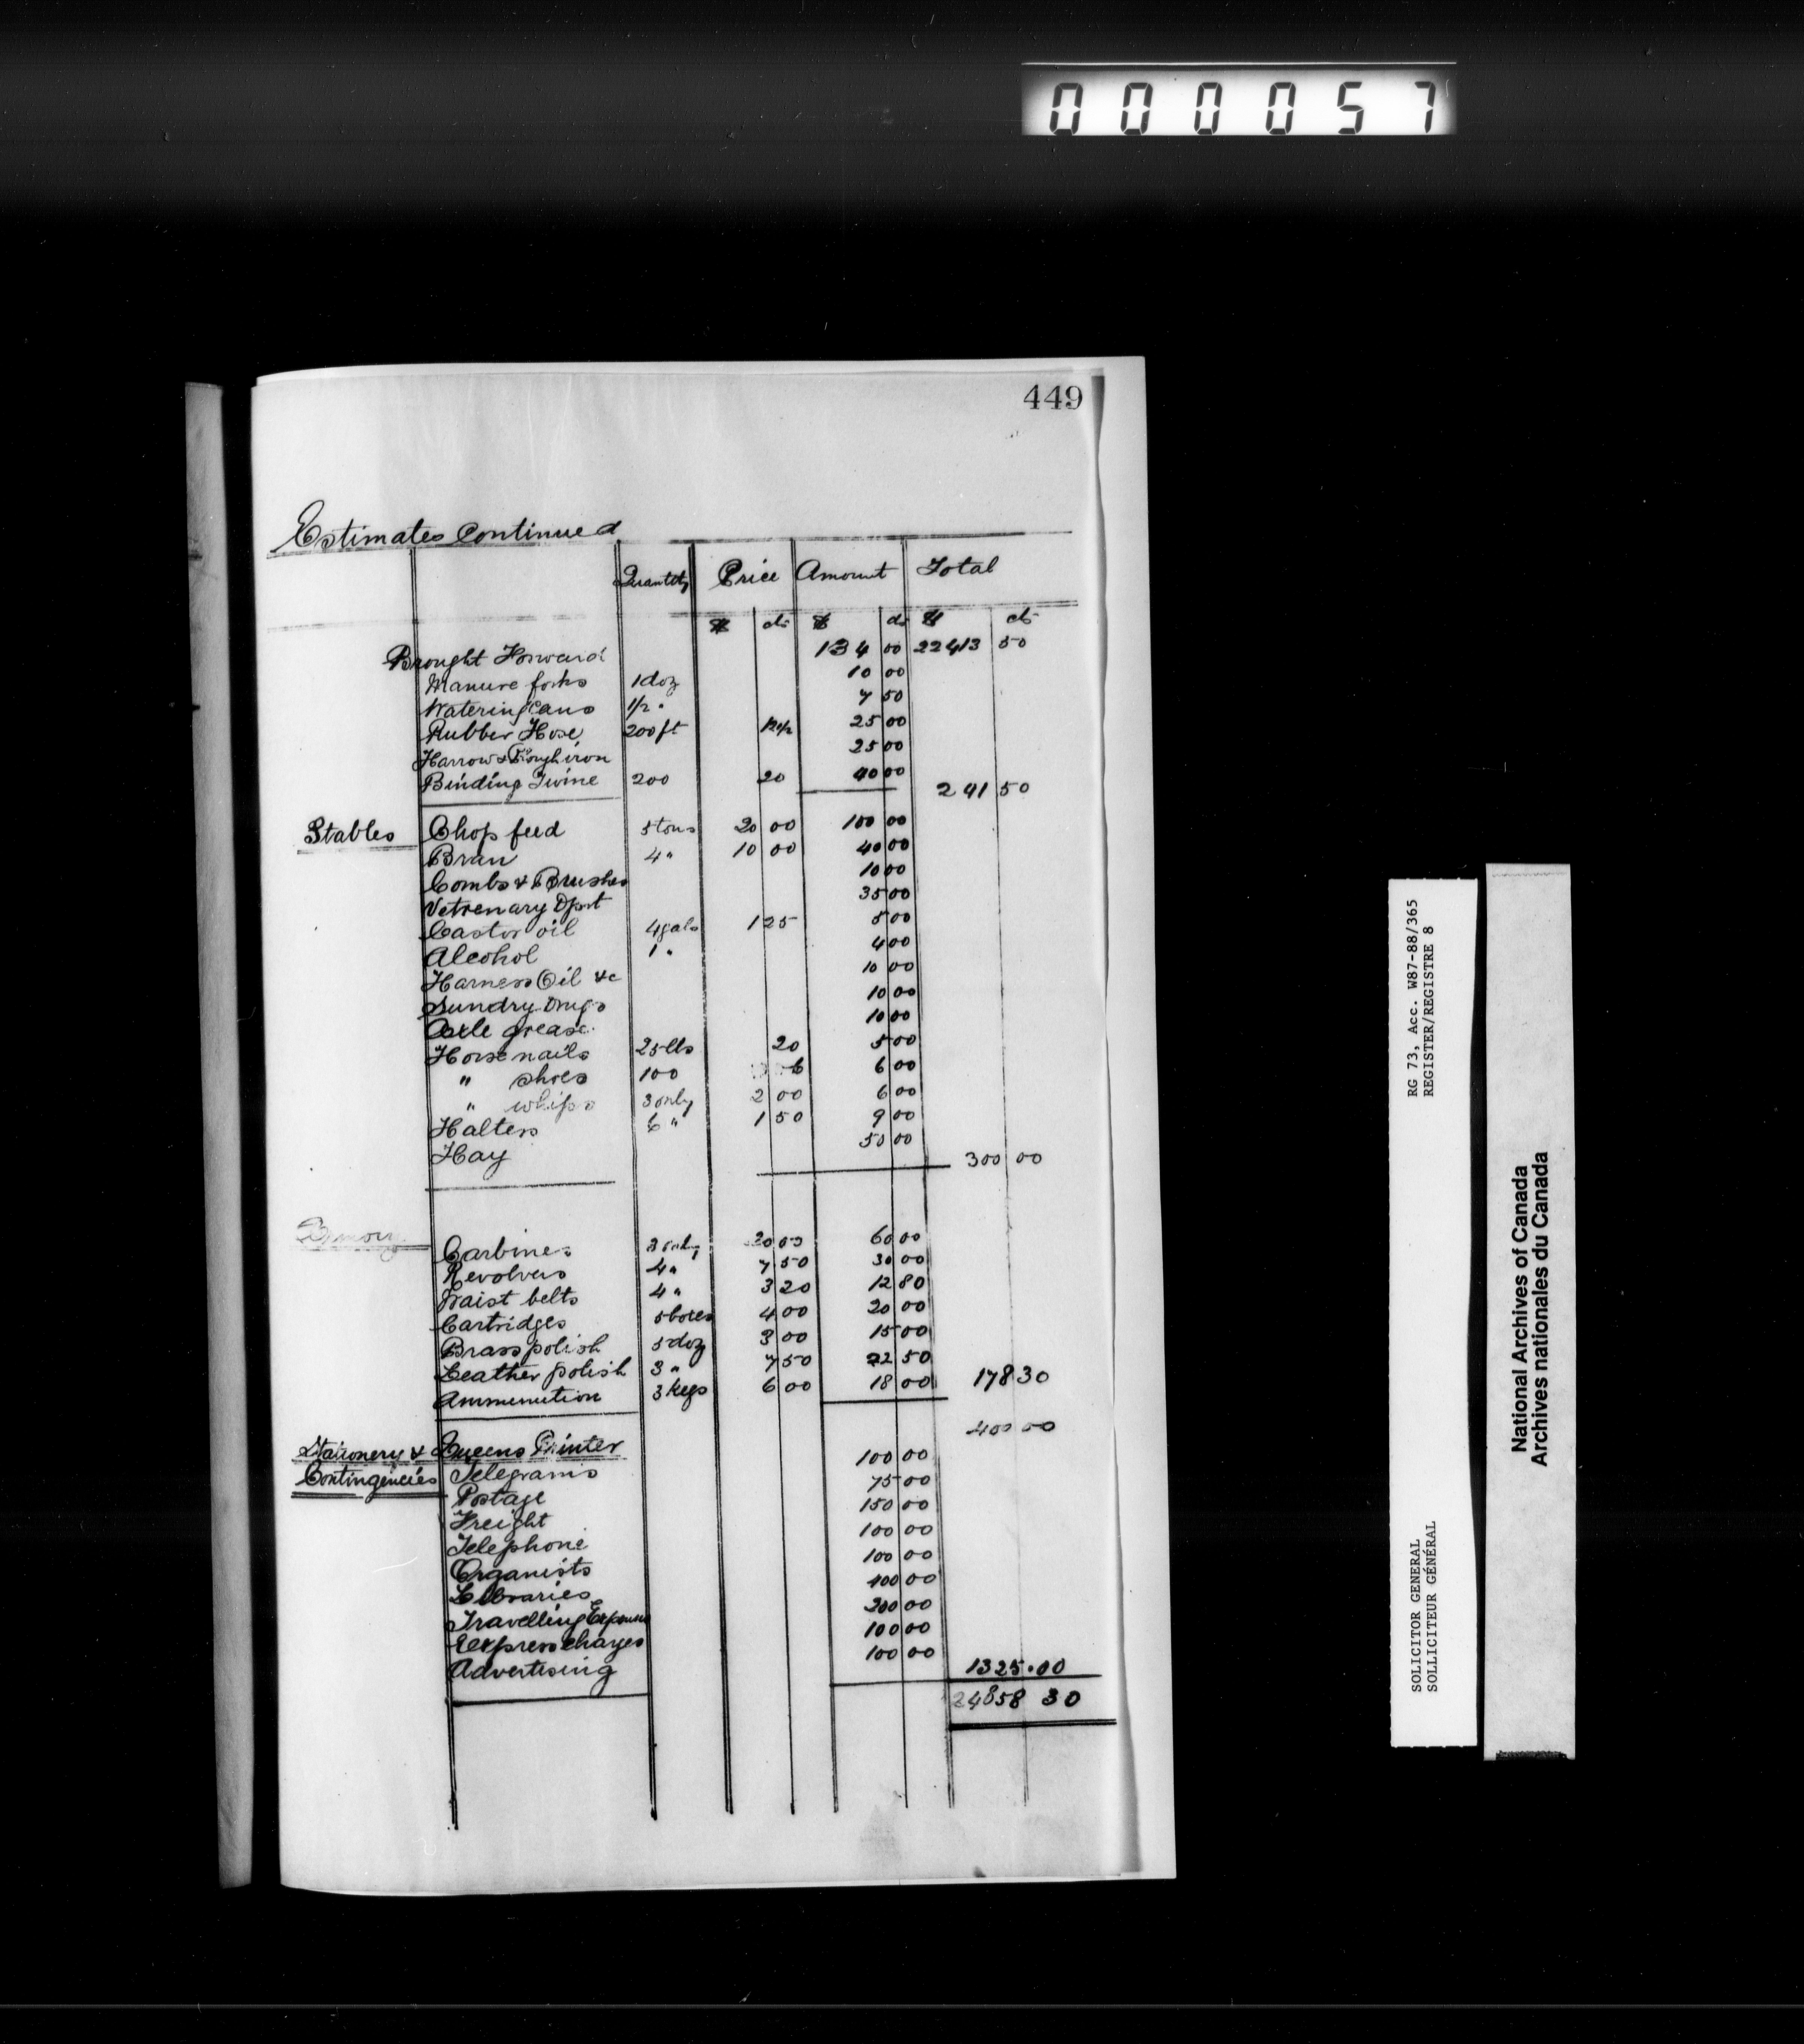 000057
449
Estimates Continued
Quantity Price Amount Total
$ cts $ cts $ cts
Brought Forward 134 00 22413 50
Manure forks 1 doz 10 00
Watering Cans 1/2 " 7 50
Rubber Hose 200 ft 12 1/2 25 00
Harrow & Plough iron 25 00
Binding Twine 200 20 40 00 241 50
Stables Chop feed 5 tons 20 00 100 00
Bran 4 " 10 00 40 00
Combs & Brushes 10 00
Vetrenary Dpart 35 00
Castor oil 4 gals 1 25 5 00
Alcohol 1 " 4 00
Harness Oil &c 10 00
Sundry Drugs 10 00
Axle grease 10 00
Horse nails 25 lbs 20 5 00
" shoes 100 6 6 00
" whips 3 only 2 00 6 00
Halters 6 " 1 50 9 00
Hay 50 00 300 00
Carbines 3 only 20 00 60 00
Revolvers 4 " 7 50 30 00
Waist belts 4 " 3 20 12 80
Cartridges 5 boxes 4 00 20 00
Brass polish 5 doz 3 00 15 00
Leather polish 3 " 7 50 22 50
Ammunution 3 kegs 6 00 18 00 178 30
Stationery & Queens Printer 400 00
Contingencies Telegrams 100 00
Postage 75 00
Freight 150 00
Telephone 100 00
Organists 100 00
Libraries 400 00
Travelling Expenses 200 00
Express charges 100 00
Advertising 100 00 1325.00
24858 30
RG 73, Acc. W87-88/365
REGISTER/REGISTRE 8
SOLICITOR GENERAL
SOLLICITEUR GÉNÉRAL
National Archives of Canada
Archives nationales du Canada